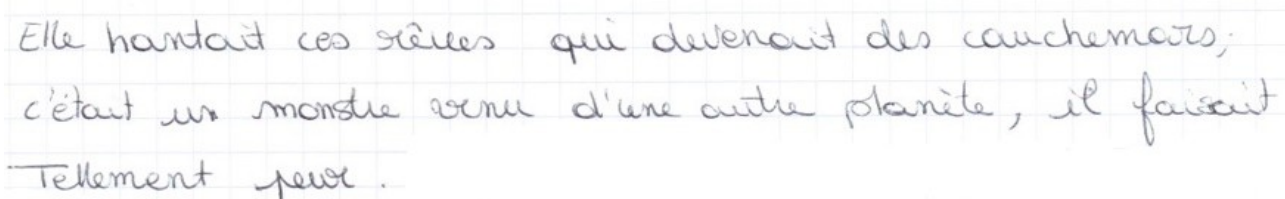 Elle hantait ces rêves qui devenait des cauchemars,
c'était un monstre venu d'une autre planète, il faisait
Tellement peur.